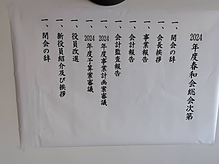 2024年度春和会総会次第
一、開会の辞
一、会長挨拶
一、事業報告
一、会計報告
一、会計監査報告
一、2024年度事業計画案審議
一、2024年度予算案審議
一、役員改選
一、新役員紹介及び挨拶
一、閉会の辞